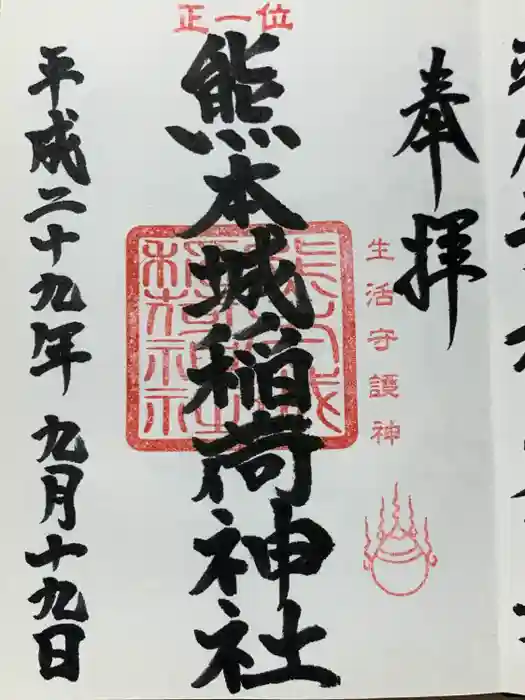 奉拝
生活守護神
正一位
熊本城稲荷神社
平成二十九年九月十九日